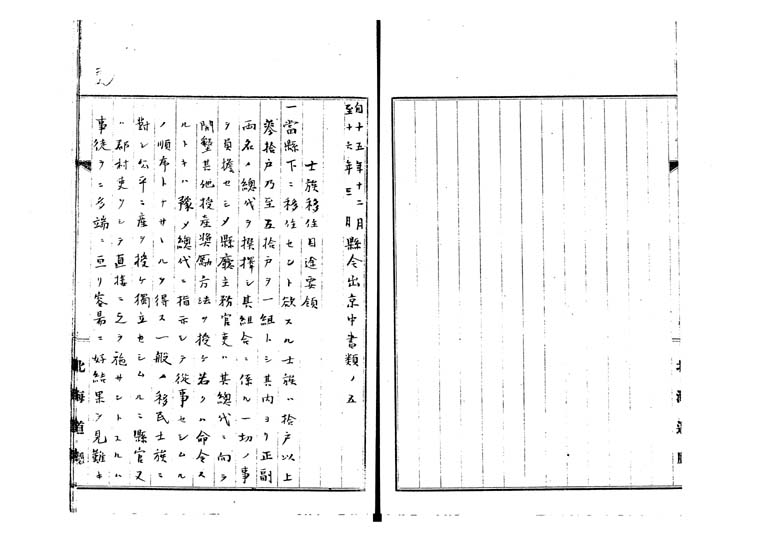 自十五年十二月
至十六年三月縣令出京中書類ノ五
士族移住目途要領
一當縣下ニ移住セント欲スル士族ハ拾戸以上
參拾戸乃至五拾戸ヲ一組トシ其内ヨリ正副
両名ノ總代ヲ撰擇シ其組合ニ係ル一切ノ事
ヲ負擔セシメ縣廳主務官吏ハ其總代ニ向テ
開墾其他授産奬勵方法ヲ授ケ若クハ命令ス
ルトキハ豫メ總代ニ指示シテ從事セシムル
ノ順布トナサヾルヲ得ス一般ノ移民士族ニ
對シ公平ニ産ヲ授ケ獨立セシムルニ縣官又
ハ郡村吏ヲシテ直接ニ之ヲ施サントスルハ
事徒ラニ多端ニ亘リ容易ニ好結果ヲ見難キ
北海道廳
北海道廳